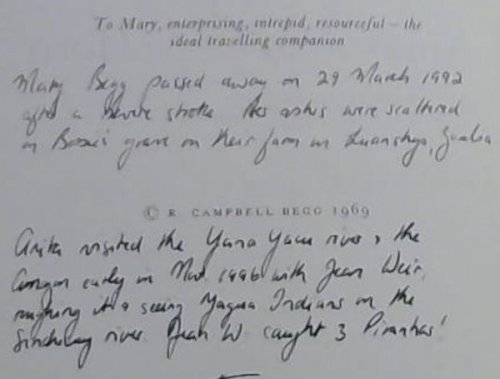 To Mary, enterprising, intrepid, resourceful – the
ideal travelling companion
Mary Begg passed away on 29 March 1992
after a severe stroke Her ashes were scattered
on grave on their farm in Luanshya, Zambia
© R. CAMPBELL BEGG 1969
Anita visited the Yana Yacu river, the
Amazon early in 1996 with Jean Weir,
seeing Yagua Indians on the
river. Jean W. caught 3 Piranhas!